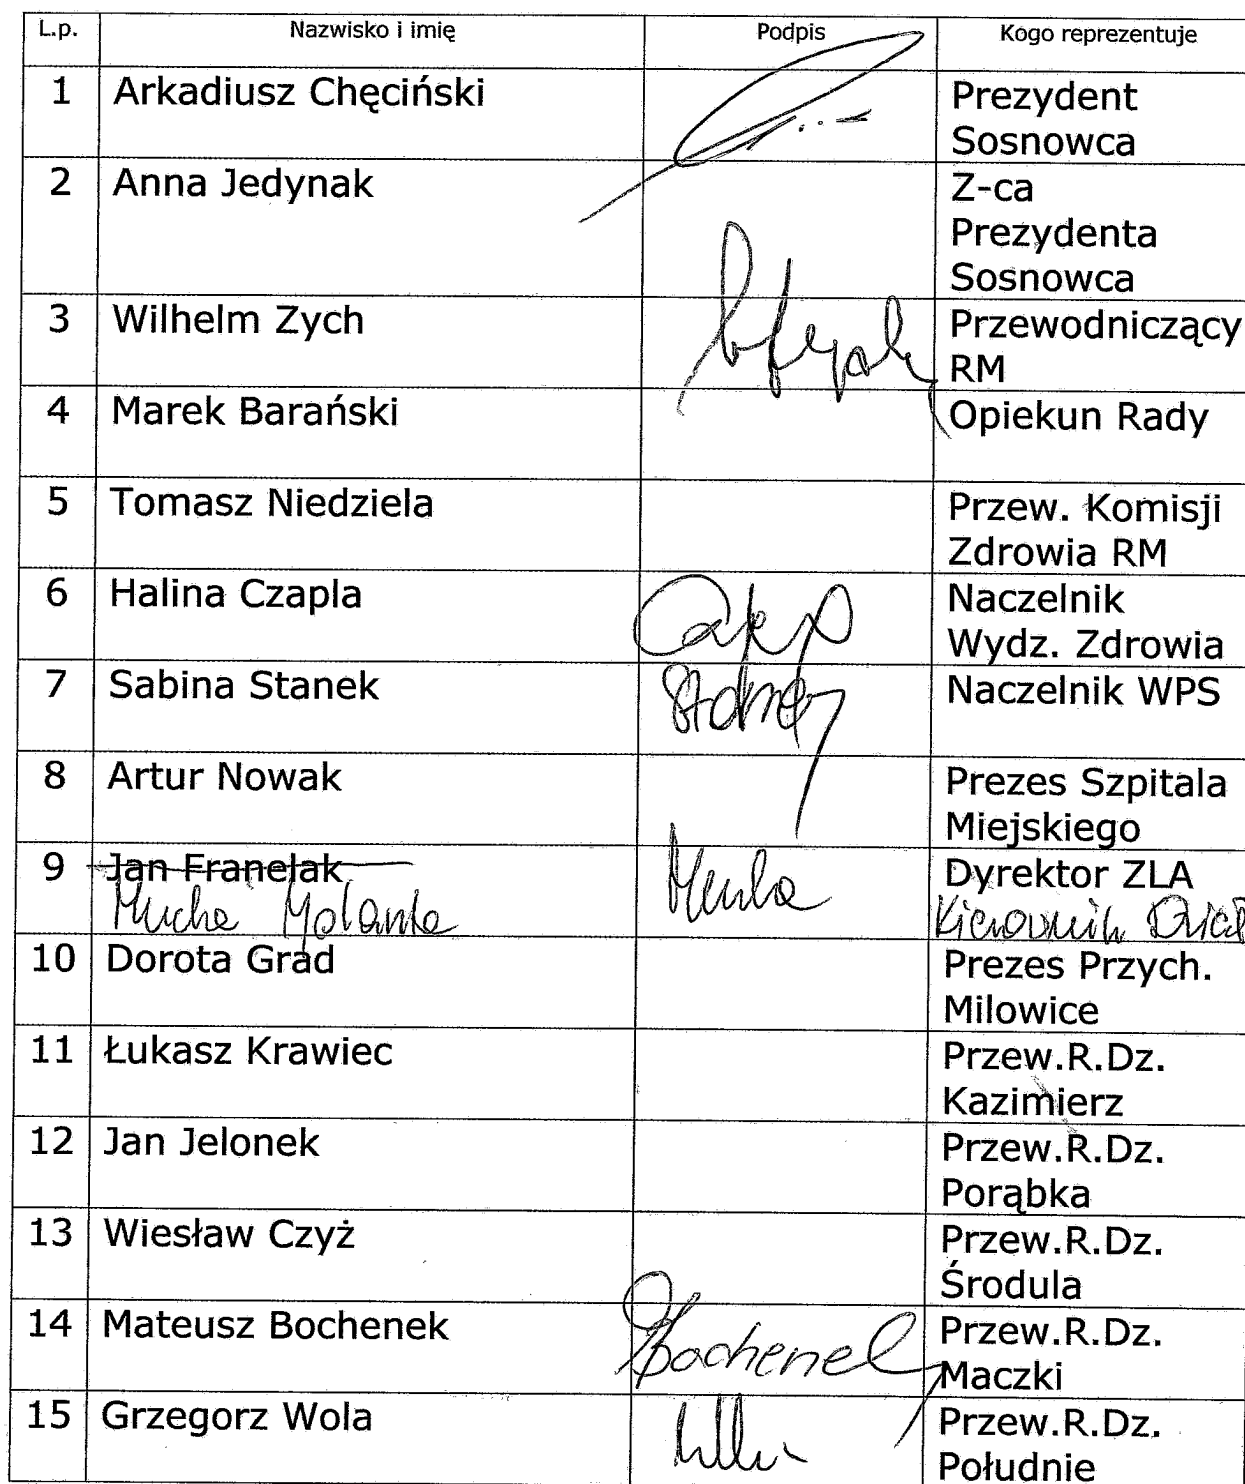 L.p. Nazwisko i imię Podpis Kogo reprezentuje
1 Arkadiusz Chęciński Prezydent
Sosnowca
2 Anna Jedynak Z-ca
Prezydenta
Sosnowca
3 Wilhelm Zych Przewodniczący
RM
4 Marek Barański Opiekun Rady
5 Tomasz Niedziela Przew. Komisji
Zdrowia RM
6 Halina Czapla Naczelnik
Wydz. Zdrowia
7 Sabina Stanek Naczelnik WPS
8 Artur Nowak Prezes Szpitala
Miejskiego
9 Jan Franelak Dyrektor ZLA
Mucha Jolanta Mucha Kierownik
10 Dorota Grad Prezes Przych.
Milowice
11 Łukasz Krawiec Przew.R.Dz.
Kazimierz
12 Jan Jelonek Przew.R.Dz.
Porąbka
13 Wiesław Czyż Przew.R.Dz.
Środula
14 Mateusz Bochenek Bochenek Przew.R.Dz.
Maczki
15 Grzegorz Wola Przew.R.Dz.
Południe